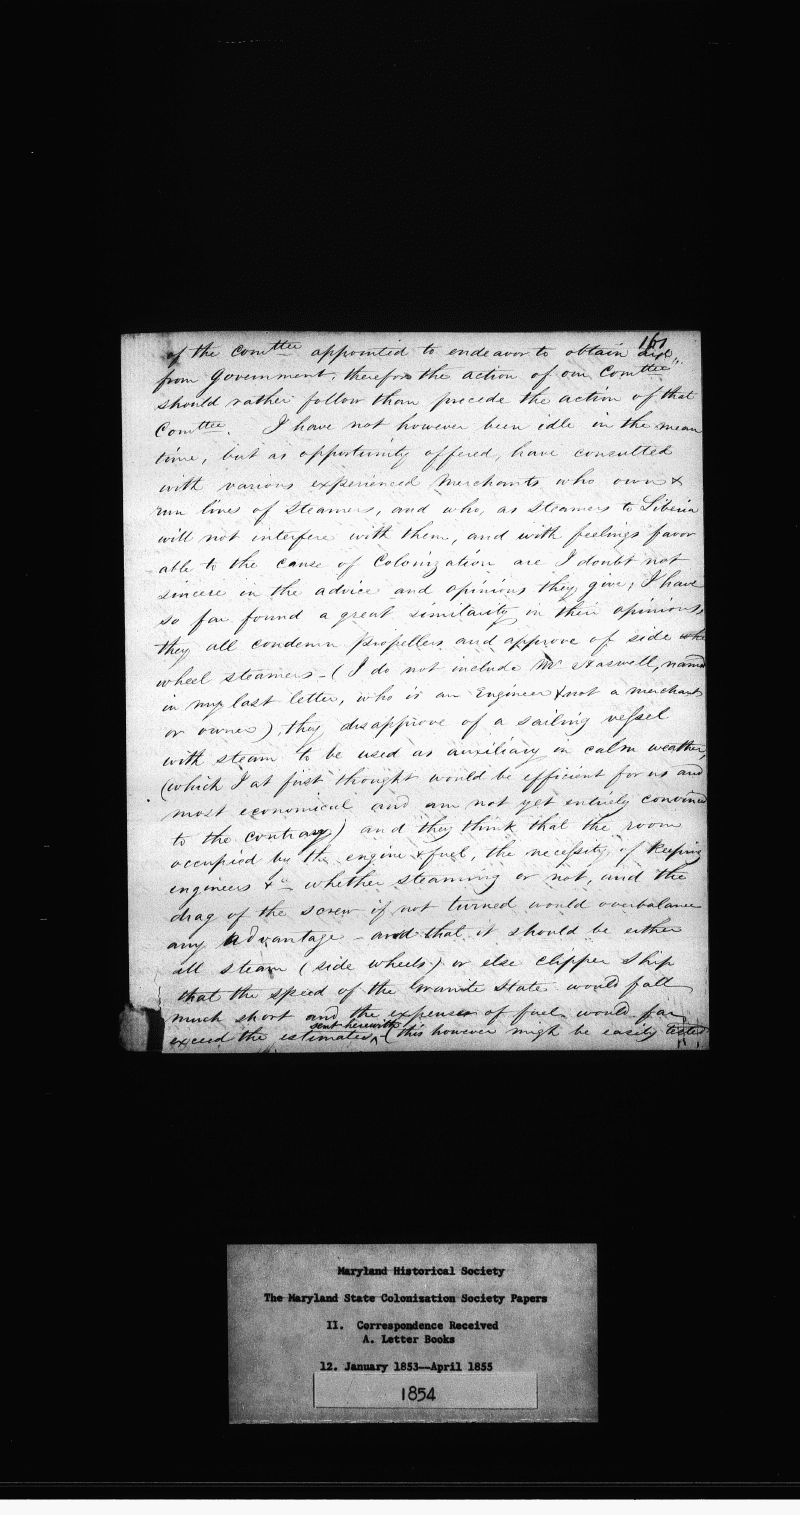 161
of the Comttee appointed to endeavor to obtain aid
from Government, therefore the action of our Comttee
should rather follow than precede the action of that
Comttee. I have not however been idle in the mean
time, but as opportunity offered, have consulted
with various experienced Merchants who own &
run lines of Steamers, and who, as Steamers to Liberia
will not interfere with them, and with feelings favor
able to the cause of Colonization are I doubt not
sincere in the advice and opinions they give; I have
so far found a great similarity in their opinions,
they all condemn Propellers and approve of side whe
wheel steamers - (I do not include Mr Haswell, named
in my last letter, who is an Engineer & not a merchant
or owner), they disapprove of a sailing vessel
with steam to be used as auxiliary in calm weather,
(which I at first thought would be efficient for us and
most economical and am not yet entirely convinced
to the contrary) and they think that the room
occupied by the engine & fuel, the necessity of keeping
engineers &c whether steaming or not, and the
drag of the screw if not turned would overbalance
any advantage - and that it should be either
all steam (side wheels) or else clipper ship
that the speed of the Granite State would fall
much short and the expenses of fuel would far
exceed the estimates sent herewith - (this however might be easily tested
Maryland Historical Society
The Maryland State Colonization Society Papers
II. Correspondence Received
A. Letter Books
12. January 1853--April 1855
1854